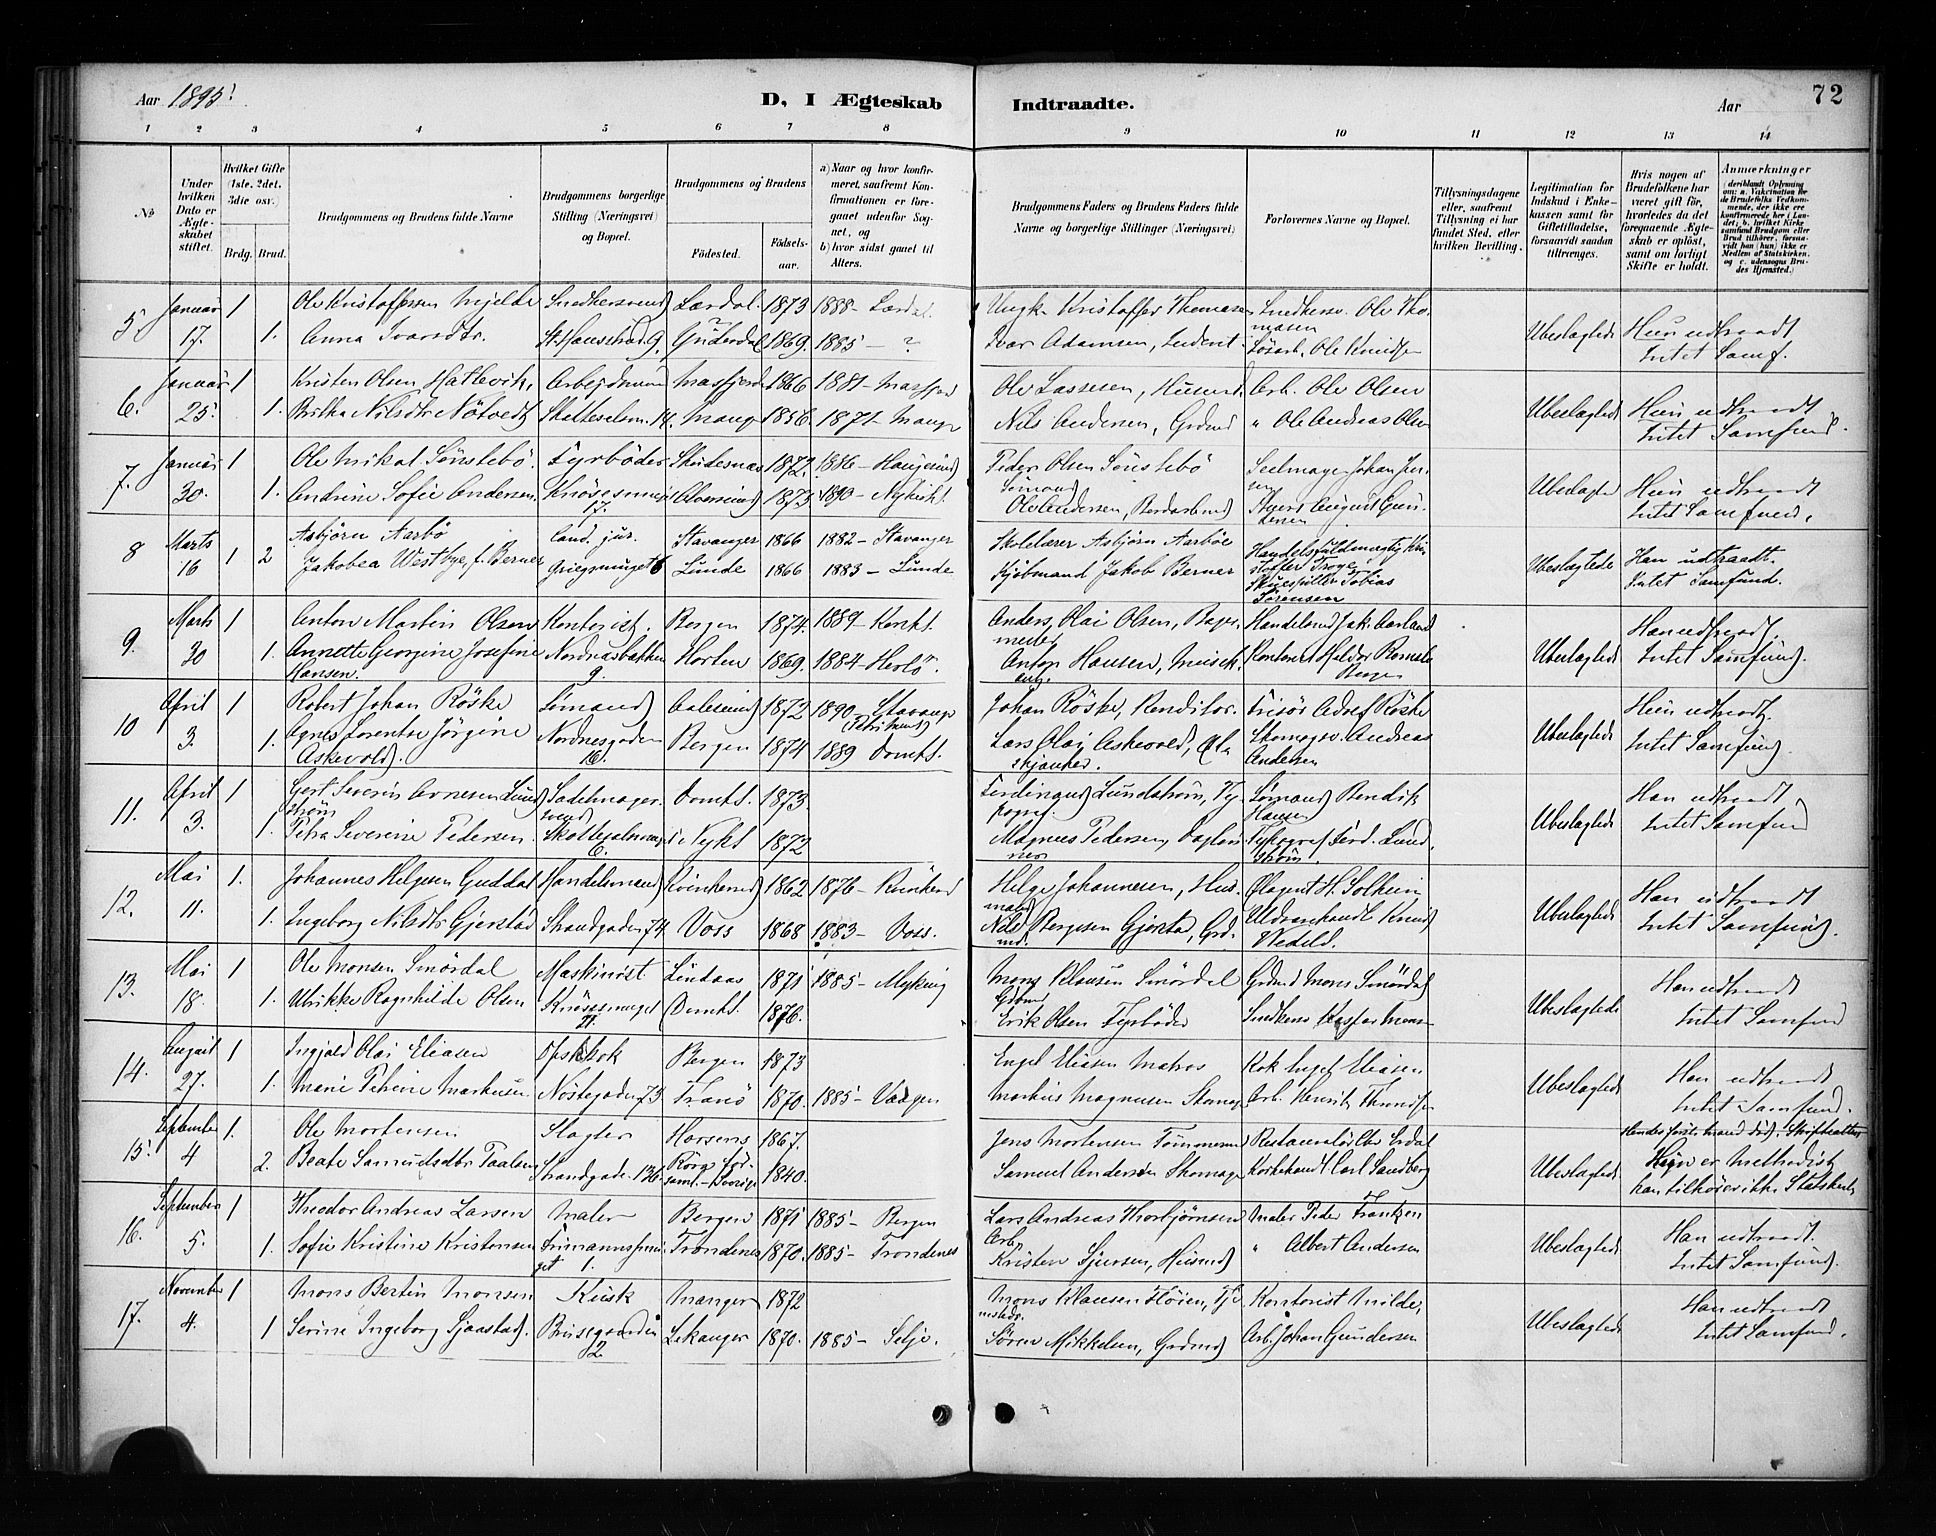 Aar 1895.
D, I Ægteskab Indtraadte.
Aar
72
1 2 3 4 5 6 7 8 9 10 11 12 13 14
No
Under hvilken Dato er Ægteskabet stiftet.
Hvilket Gifte (1ste, 2det, 3die osv.)
Brdg. Brud.
Brudgommens og Brudens fulde Navne
Brudgommens borgerlige Stilling (Næringsvei) og Bopæl.
Brudgommens og Brudens
Fødested.
Fødselsaar.
a) Naar og hvor konfirmeret, saafremt Konfirmationen er foregaaet udenfor Sognet, og
b) hvor sidst gaaet til Alters.
Brudgommens Faders og Brudens Faders fulde Navne og borgerlige Stillinger (Næringsvei)
Forlovernes Navne og Bopæl.
Tillysningsdagene eller, saafremt Tillysning ei har fundet Sted, efter hvilken Bevilling.
Legitimation for Indskud i Enkekassen samt for Giftetilladelse, forsaavidt saadan tiltrænges.
Hvis nogen af Brudefolkene har været gift før, hvorledes da det foregaaende Ægteskab er opløst, samt om lovligt Skifte er holdt.
Anmærkninger
5. Januar 1 Ole Kristoffersen Mjelde Snedkersvend Lærdal. 1873 1888 - Lærdal. Ungk. Kristoffer Thomasen Snedkersv. Ole Thomasen
17. 1. Anna Ivarsdtr. 1869. 1885 - ? Ivar Adamsen, Løsarb. Ole Knudsen Ubeslægtede Hun udtraadt Intet Samf.
6. Januar 1 Kristen Olsen Hatlevik, Arbejdsmand Masfjord 1866 1881 - Masfjord Ole Lassesen, Husmd. Arb. Ole Olsen
25. 1. Britha Nilsdtr Nötvedt Skottesalm. 14. Mange 1856. 1871 - Manger Nils Andersen, Grdmd " Ole Andreas Olsen Ubeslægtede Hun udtraadt Intet Samfund.
7. Januar 1 Ole Mikal Sönstebö. Fyrböder Skudesnæs 1872. 1886 - Haugesund Peder Olsen Sönstebö Sömand Seilmager Johan
30. 1. Andrine Sofie Andersen. Knösesmug 17. Alversund 1873 1890 - Nykirk. Ole Andersen, August Gundersen Ubeslægte Hun udtraadt Intet Samfund.
8 Marts 1 2 Asbjörn Aarbö Cand. jur. Stavanger 1866 1882 - Stavanger Skolelærer Asbjörn Aarböe Handelsfuldmægtig Kristoffer Troye
16 Jakobea Westbye, f. Berner Griegsmuget 6 Lunde 1866 1883 - Lunde Kjöbmand Jakob Berner Skuespiller Tobias Sörensen Ubeslægtede Han udtraadt. Intet Samfund.
9. Marts 1 Anton Martin Olsen Kontorist. Bergen 1874. 1889 - Korskt. Anders Olai Olsen, Bagermester Handelsmd Jak. Aarland
30 1. Annette Georgine Josefine Hansen. Nordnæsbakken 9. Horten 1869. 1884 - Herlö. Anton Hansen, Kontorist Bergen Ubeslægtede Han udtraadt. Intet Samfund.
10 April 1 Robert Johan Röske Sömand Aalesund 1872 1890 - Stavanger (Petrikirke) Johan Röske, Konditor. Frisör Adolf Röske
3. 1. Agnes Lorentse Jörgine Askevold. Nordnesgaden 16. Bergen 1874 1889 Domk. Lars Olai Askevold, Ölskjænker. Skomagsv. Andreas Andersen Ubeslægtede Hun udtraadt. Intet Samfund.
11. April 1 Gert Severin Arnesen Lundström Sadelmagersvend Domk. 1873. Ferdinand Lundström, Typograf. Sömand Bendik Hansen
3. 1. Petra Severine Pedersen. Skottesalmen 6. Nykt 1872 Magnus Pedersen, Daglönner Typograf Ferd. Lundström. Ubeslægtede Han udtraadt Intet Samfund
12. Mai 1. Johannes Helgesen Guddal Handelsmand Kvinherred 1862 1876 - Kvinherred Helge Johannesen, Husmand Ölagent H. Solheim
11. 1. Ingeborg Nilsdtr Gjerstad Strandgaden 74 Voss 1868 1883 - Voss. Nils Bergesen Gjerstad, Grdmd. Uldvarehandl Knud Wedeld. Ubeslægtede Han udtraadt Intet Samfund.
13. Mai 1 Ole Monsen Smördal Maskinist Lindaas 1871 1885 - Myking Mons Klausen Smördal Grdmd Grdmd Mons Smördal
18. 1. Ulrikke Ragnhilde Olsen Knösesmuget 21. Domk. 1876. Erik Olsen Fyrböder Snedkersv Kasper Monsen Ubeslægtede Han udtraadt Intet Samfund
14. August 1 Ingjald Olai Eliasen Bergen 1873 Engel Eliasen Matros Kok Engel Eliasen
27. 1. Marie Petrine Markusen Nöstegaden 73 Tranö 1870. 1885 - Vaagen Markus Magnusen Skomag. Arb. Henrik Ubeslægtede Han udtraadt Intet Samfund.
15. September 1. Ole Mortensen Slagter Horsens 1867. Jens Mortensen Tömmermd Restauratör Chr Erdal Hendes förste mand död.
4 2. Beate Samuelsdtr Paalsen Strandgade 136. 1840. Samuel Andersen Skomage Korkehandl. Carl Sandberg Ubeslægtede Hun er Methodist han tilhører ikke Statskirk.
16. September 1 Theodor Andreas Larsen Maler Bergen 1871 1885 - Bergen Lars Andreas Thorbjörnsen Arb. Maler Peder Frantzen
5. 1. Sofie Kristine Kristensen Frimannssmuget 1. Trondenes 1870. 1885 - Trondenes Kristen Sjursen, Husmd " Albert Andersen Ubeslægtede Han udtraadt. Intet Samfund.
17. November 1 Mons Bertin Monsen Kusk Manger 1872 Mons Klausen Flöien, Kontorist Milde,
4. 1 Serine Ingeborg Sjaastad. Brusegaarden 12 Lekanger 1870. 1885 - Selje. Sören Mikkelsen, Grdmd Arb. Johan Gundersen Ubeslægtede Han udtraadt Intet Samfund.